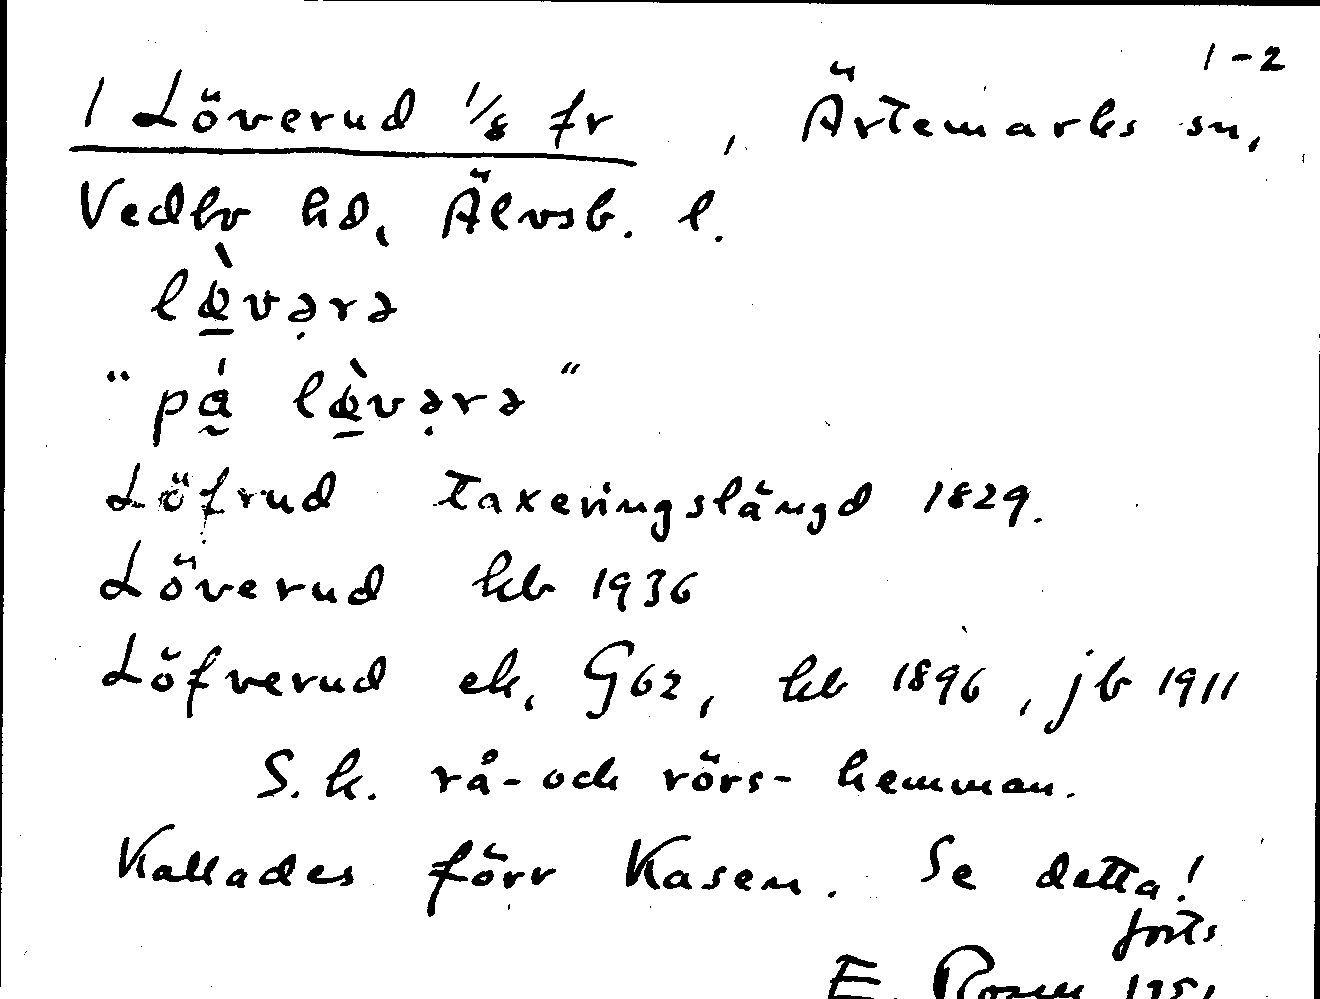 1-2
1 Löverud 1/8 fr , Ärtemarks sn,
Vedbo hd, Älvsb. l.
lœ̠̀və̣rə
"pá̰ lœ̠̀və̣rə"
Löfrud taxeringslängd 1829.
Löverud kb 1936
Löfverud ek, G62, kb 1896, jb 1911
S.k. rå- och rörs- hemman.
Kallades förr Kasen. Se detta!
forts
E. Rosén 1951